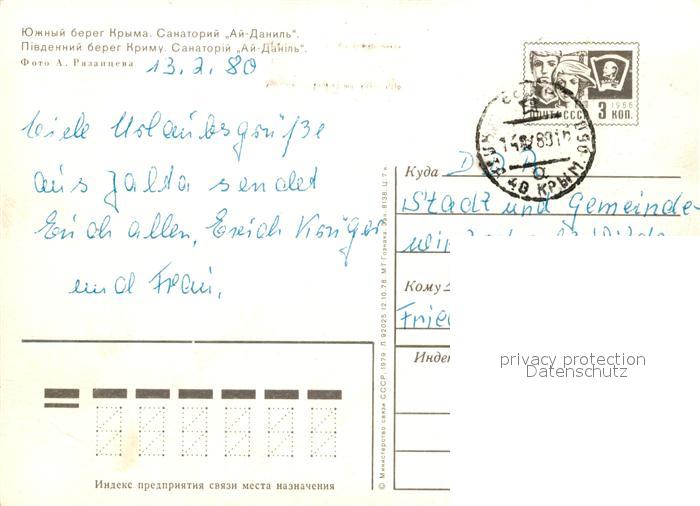 Южный берег Крыма. Санаторий „Ай-Даниль“.
Південний берег Криму. Санаторій „Ай-Даніль“.
Фото А. Рязанцева
13.2.80
Viele Urlaubsgrüße
aus Jalta sendet
Euch allen, Erich Krüger
und Frau.
ПОЧТА СССР
1966
3 КОП.
КРЫМ.
Куда D D R
Stadt und Gemeinde-
Кому
Индекс предприятия связи места назначения
© Министерство связи СССР, 1979. Л 92025. 12.10.78. МТ Гознака. Зак. 8138. Ц. 7 к.
privacy protection
Datenschutz